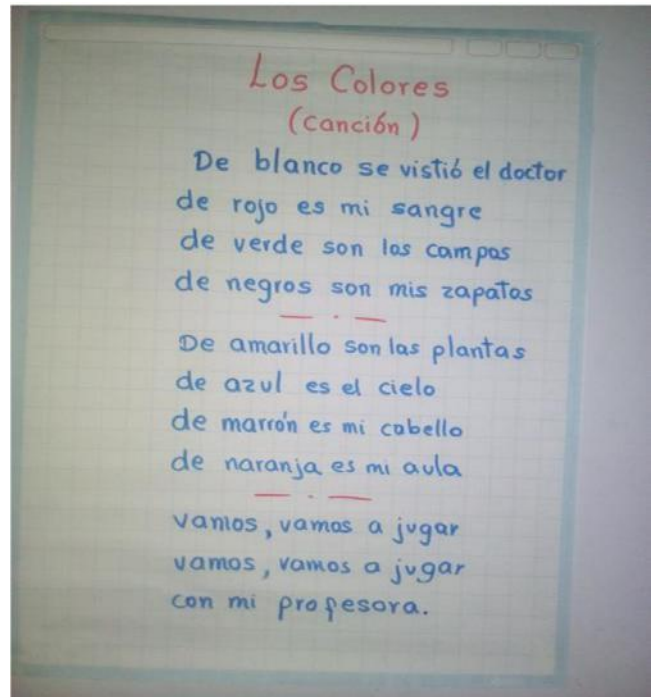 Los Colores
(canción)
De blanco se vistió el doctor
de rojo es mi sangre
de verde son los campos
de negros son mis zapatos
De amarillo son las plantas
de azul es el cielo
de marrón es mi cabello
de naranja es mi aula
vamos, vamos a jugar
vamos, vamos a jugar
con mi profesora.